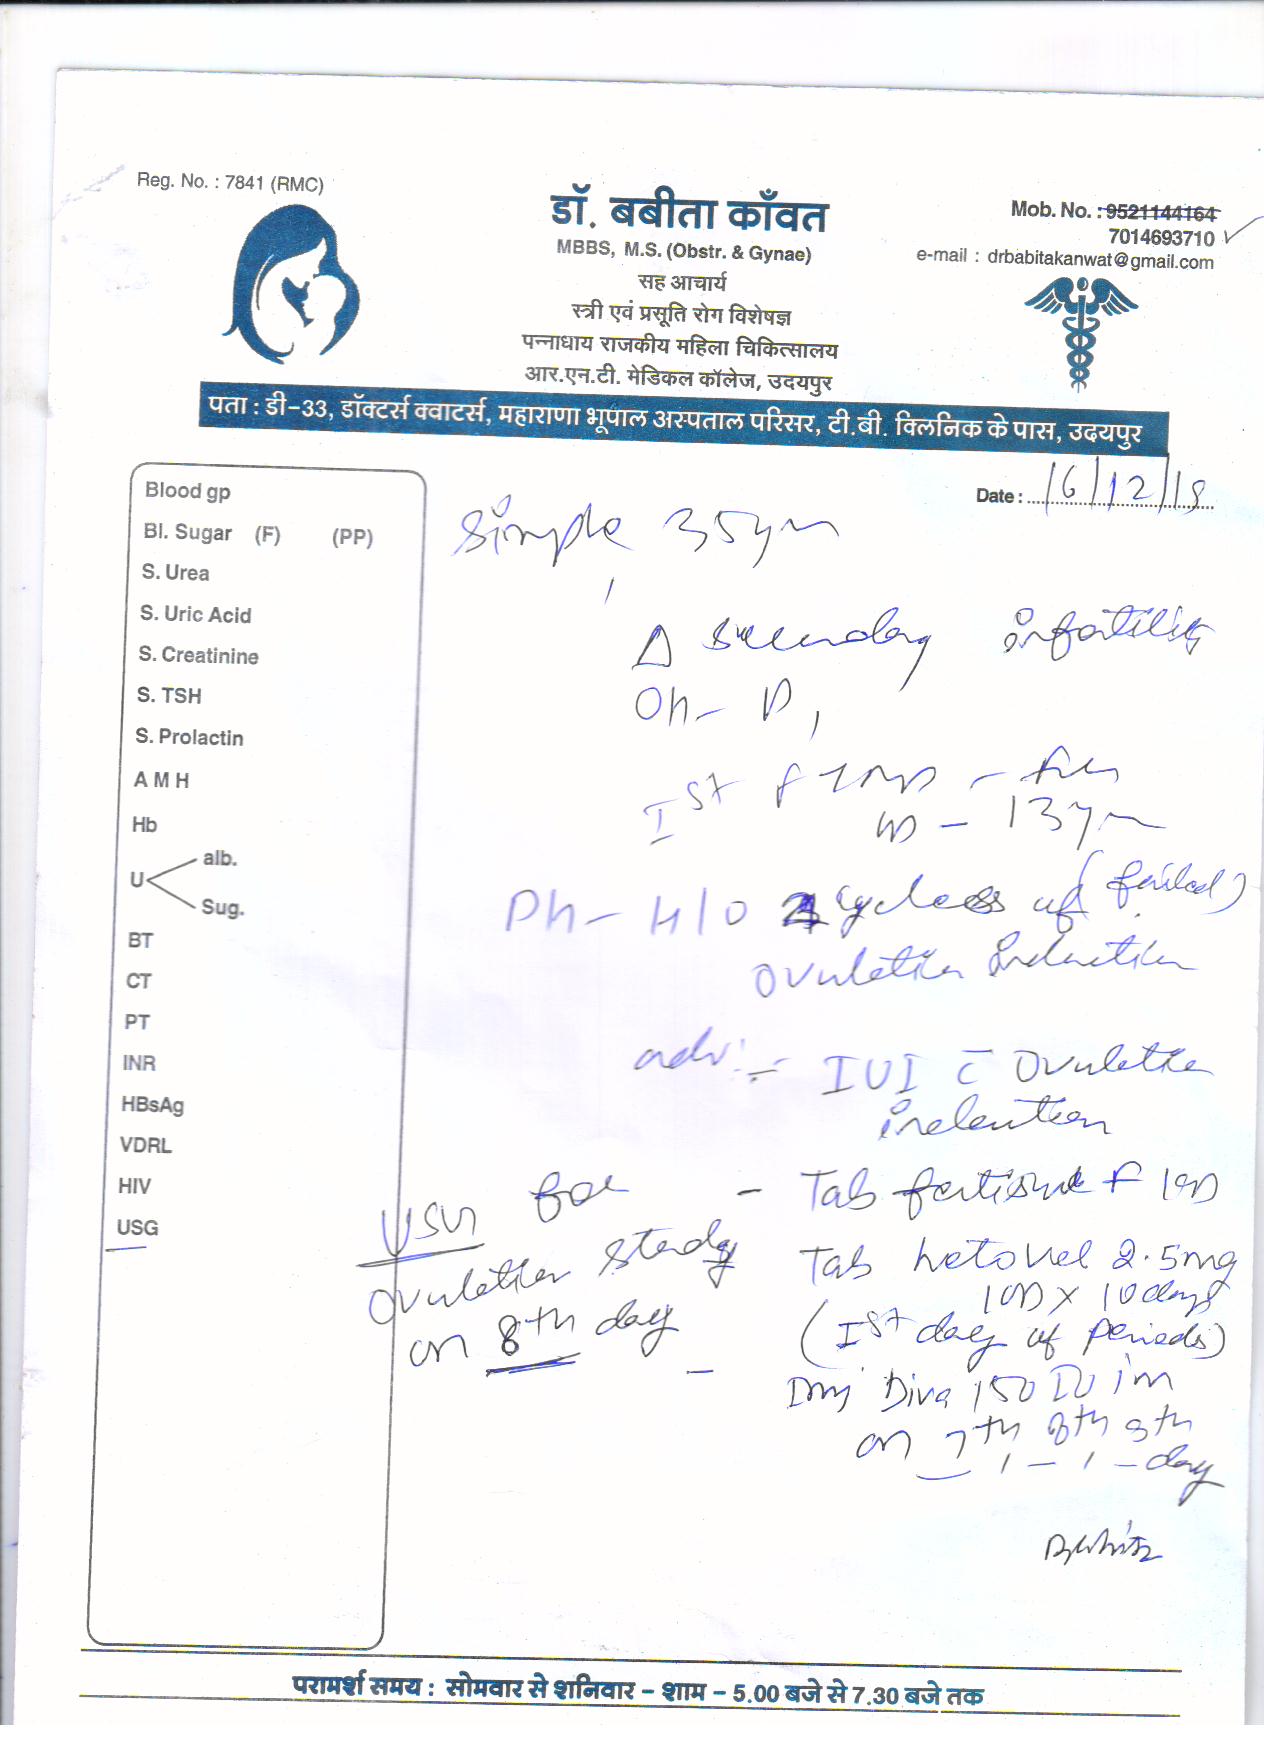 Reg. No. : 7841 (RMC)
डॉ. बबीता काँवत
MBBS, M.S. (Obstr. & Gynae)
सह आचार्य
स्त्री एवं प्रसूति रोग विशेषज्ञ
पन्नाधाय राजकीय महिला चिकित्सालय
आर.एन.टी. मेडिकल कॉलेज, उदयपुर
Mob. No. : 9521144164
7014693710
e-mail : drbabitakanwat@gmail.com
पता : डी-33, डॉक्टर्स क्वाटर्स, महाराणा भूपाल अस्पताल परिसर, टी.बी. क्लिनिक के पास, उदयपुर
Date : 16/12/18
Blood gp
Bl. Sugar (F) (PP)
S. Urea
S. Uric Acid
S. Creatinine
S. TSH
S. Prolactin
A M H
Hb
U alb.
Sug.
BT
CT
PT
INR
HBsAg
VDRL
HIV
USG
Simple, 35yrs
Δ secondary infertility
Oh-
Ist
- 13yrs
Ph- H/O cycles of (failed)
ovulation induction
adv:- IUI c̄ Ovulation
induction
- Tab F 1OD
Tab 2.5mg
1OD x 10days
(Ist day of periods)
- Inj Diva 150 IU im
on 7th, 8th, 9th day
USG for
ovulation study
on 8th day
परामर्श समय : सोमवार से शनिवार - शाम - 5.00 बजे से 7.30 बजे तक